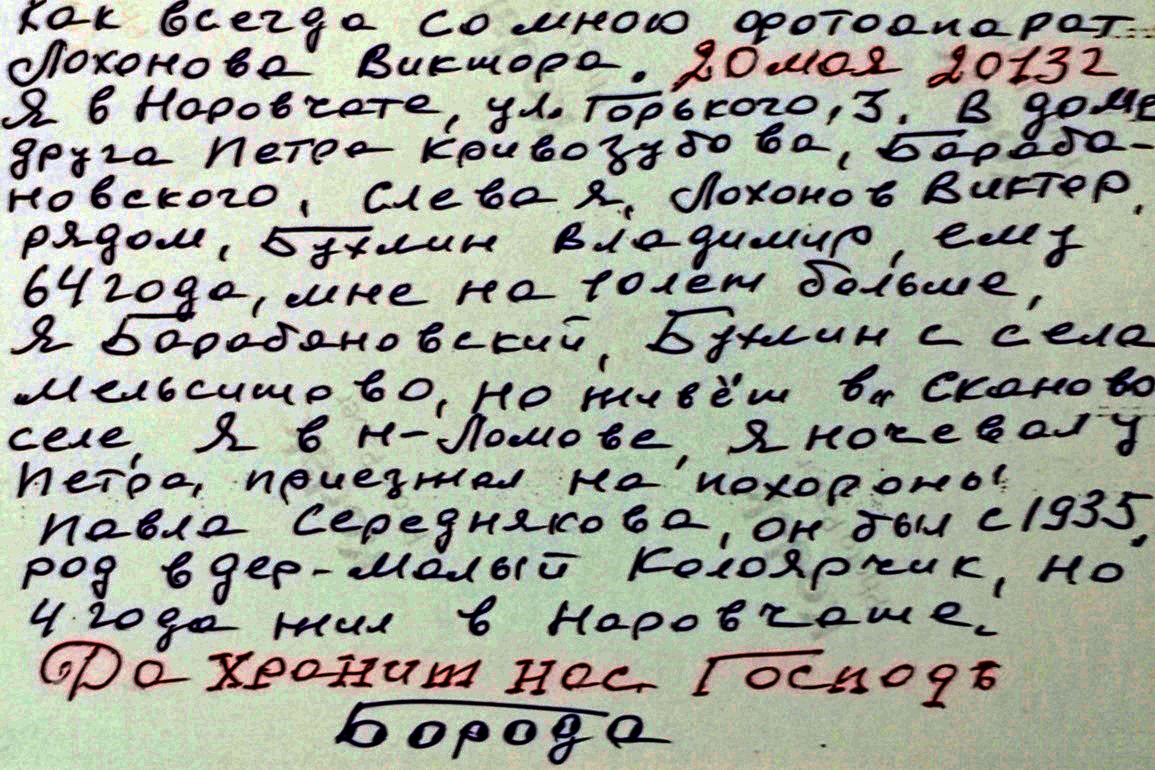 Как всегда со мною фотоапарат
Лохонова Виктора. 20 мая 2013г
Я в Наровчате, ул. Горького, 3. В доме
друга Петра Кривозубова, Бараба-
новского, Слева я, Лохонов Виктор,
рядом, Бухлин Владимир, ему
64 года, мне на 10 лет больше,
Я Барабановский, Бухлин с села
Мельситово, но живёт в" Сканово
селе, Я в Н-Ломове, я ночевал у
Петра, приезжал на похороны
Павла Середнякова, он был с 1935,
род в дер-Малый Колоярчик, но
4 года жил в Наровчате.
Да хранит нас Господь
Борода